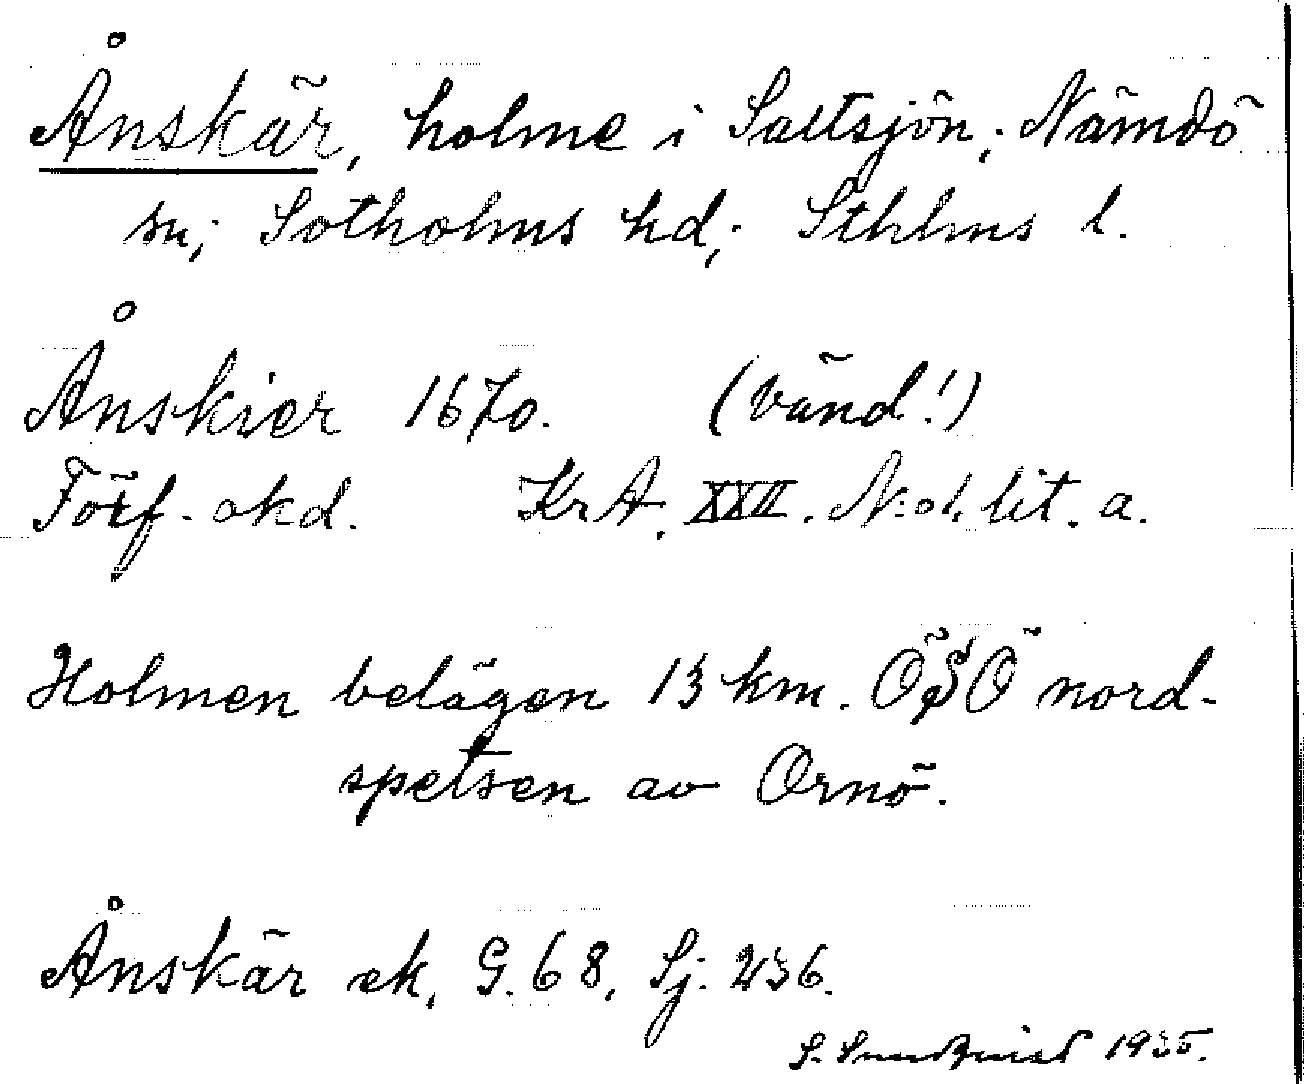 Ånskär, holme i Saltsjön; Nämdö
sn; Sotholms hd; Sthlms l.
Ånskier 1670. (vänd!)
Förf. okd. KrA. XXII. N:o 1. lit. a.
Holmen belägen 13 km. ÖSÖ nord-
spetsen av Ornö.
Ånskär ek. G. 68, Sj. 236.
S. Sundquist 1935.